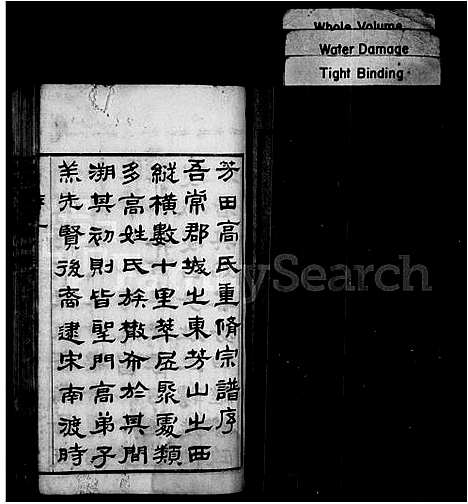 Whole Volume
Water Damage
Tight Binding
FamilySearch
芳田高氏重脩宗譜序
吾常郡城㞢東芳山㞢西
縱橫數十里萃居聚處類
多高姓氏族散布於其間
溯其初則皆聖門高弟子
羔先賢後裔逮宋南渡時